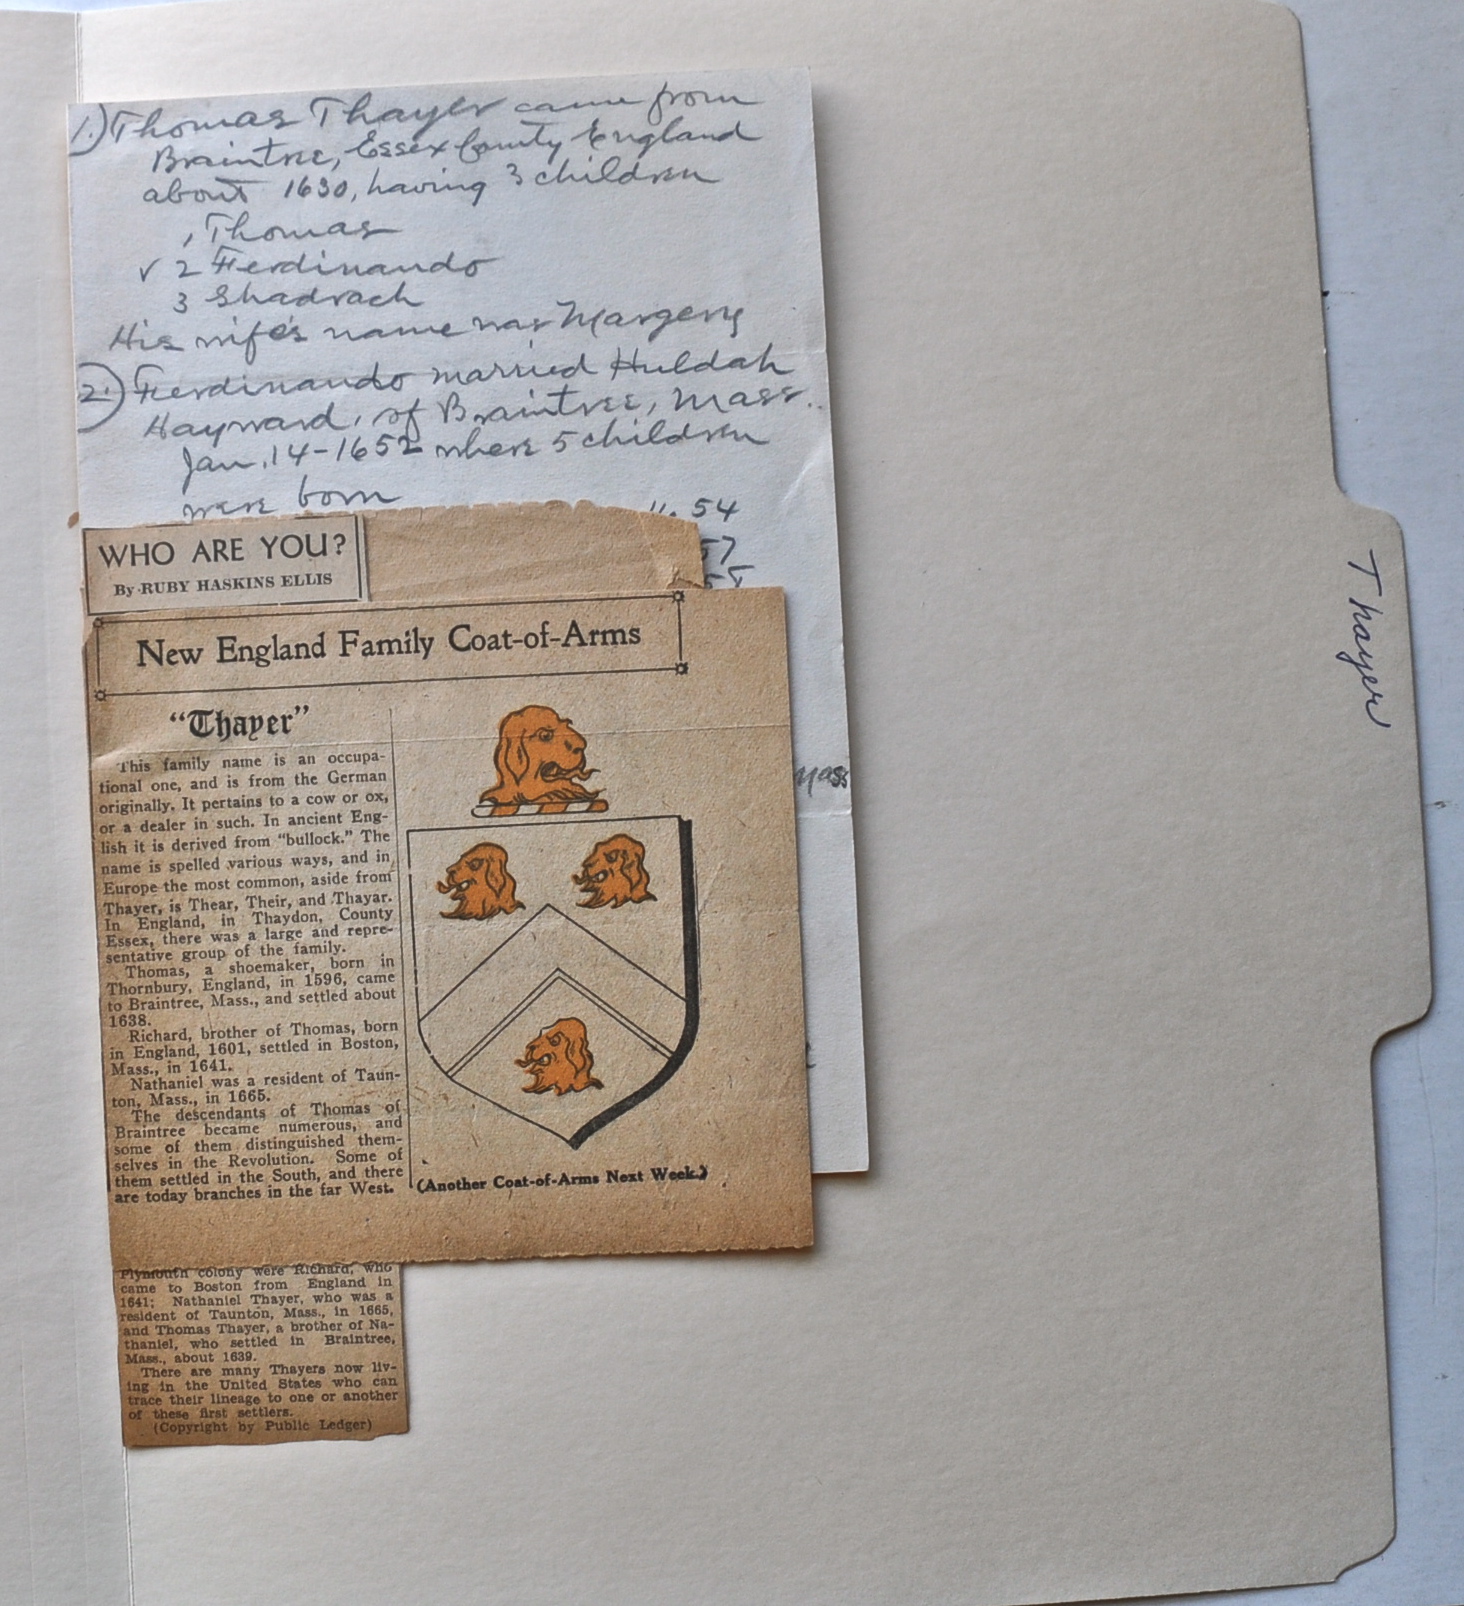 1.) Thomas Thayer came from
Braintree, Essex County England
about 1630, having 3 children
1 Thomas
✓ 2 Ferdinando
3 Shadrach
His wife's name was Margery
2.) Ferdinando married Huldah
Hayward, of Braintree, Mass.
Jan. 14-1652 where 5 children
were born
54
57
Mass
WHO ARE YOU?
By RUBY HASKINS ELLIS
New England Family Coat-of-Arms
"Thayer"
This family name is an occupa-
tional one, and is from the German
originally. It pertains to a cow or ox,
or a dealer in such. In ancient Eng-
lish it is derived from "bullock." The
name is spelled various ways, and in
Europe the most common, aside from
Thayer, is Thear, Their, and Thayar.
In England, in Thaydon, County
Essex, there was a large and repre-
sentative group of the family.
Thomas, a shoemaker, born in
Thornbury, England, in 1596, came
to Braintree, Mass., and settled about
1638.
Richard, brother of Thomas, born
in England, 1601, settled in Boston,
Mass., in 1641.
Nathaniel was a resident of Taun-
ton, Mass., in 1665.
The descendants of Thomas of
Braintree became numerous, and
some of them distinguished them-
selves in the Revolution. Some of
them settled in the South, and there
are today branches in the far West.
(Another Coat-of-Arms Next Week.)
Plymouth colony were Richard, who
came to Boston from England in
1641; Nathaniel Thayer, who was a
resident of Taunton, Mass., in 1665,
and Thomas Thayer, a brother of Na-
thaniel, who settled in Braintree,
Mass., about 1639.
There are many Thayers now liv-
ing in the United States who can
trace their lineage to one or another
of these first settlers.
(Copyright by Public Ledger)
Thayer